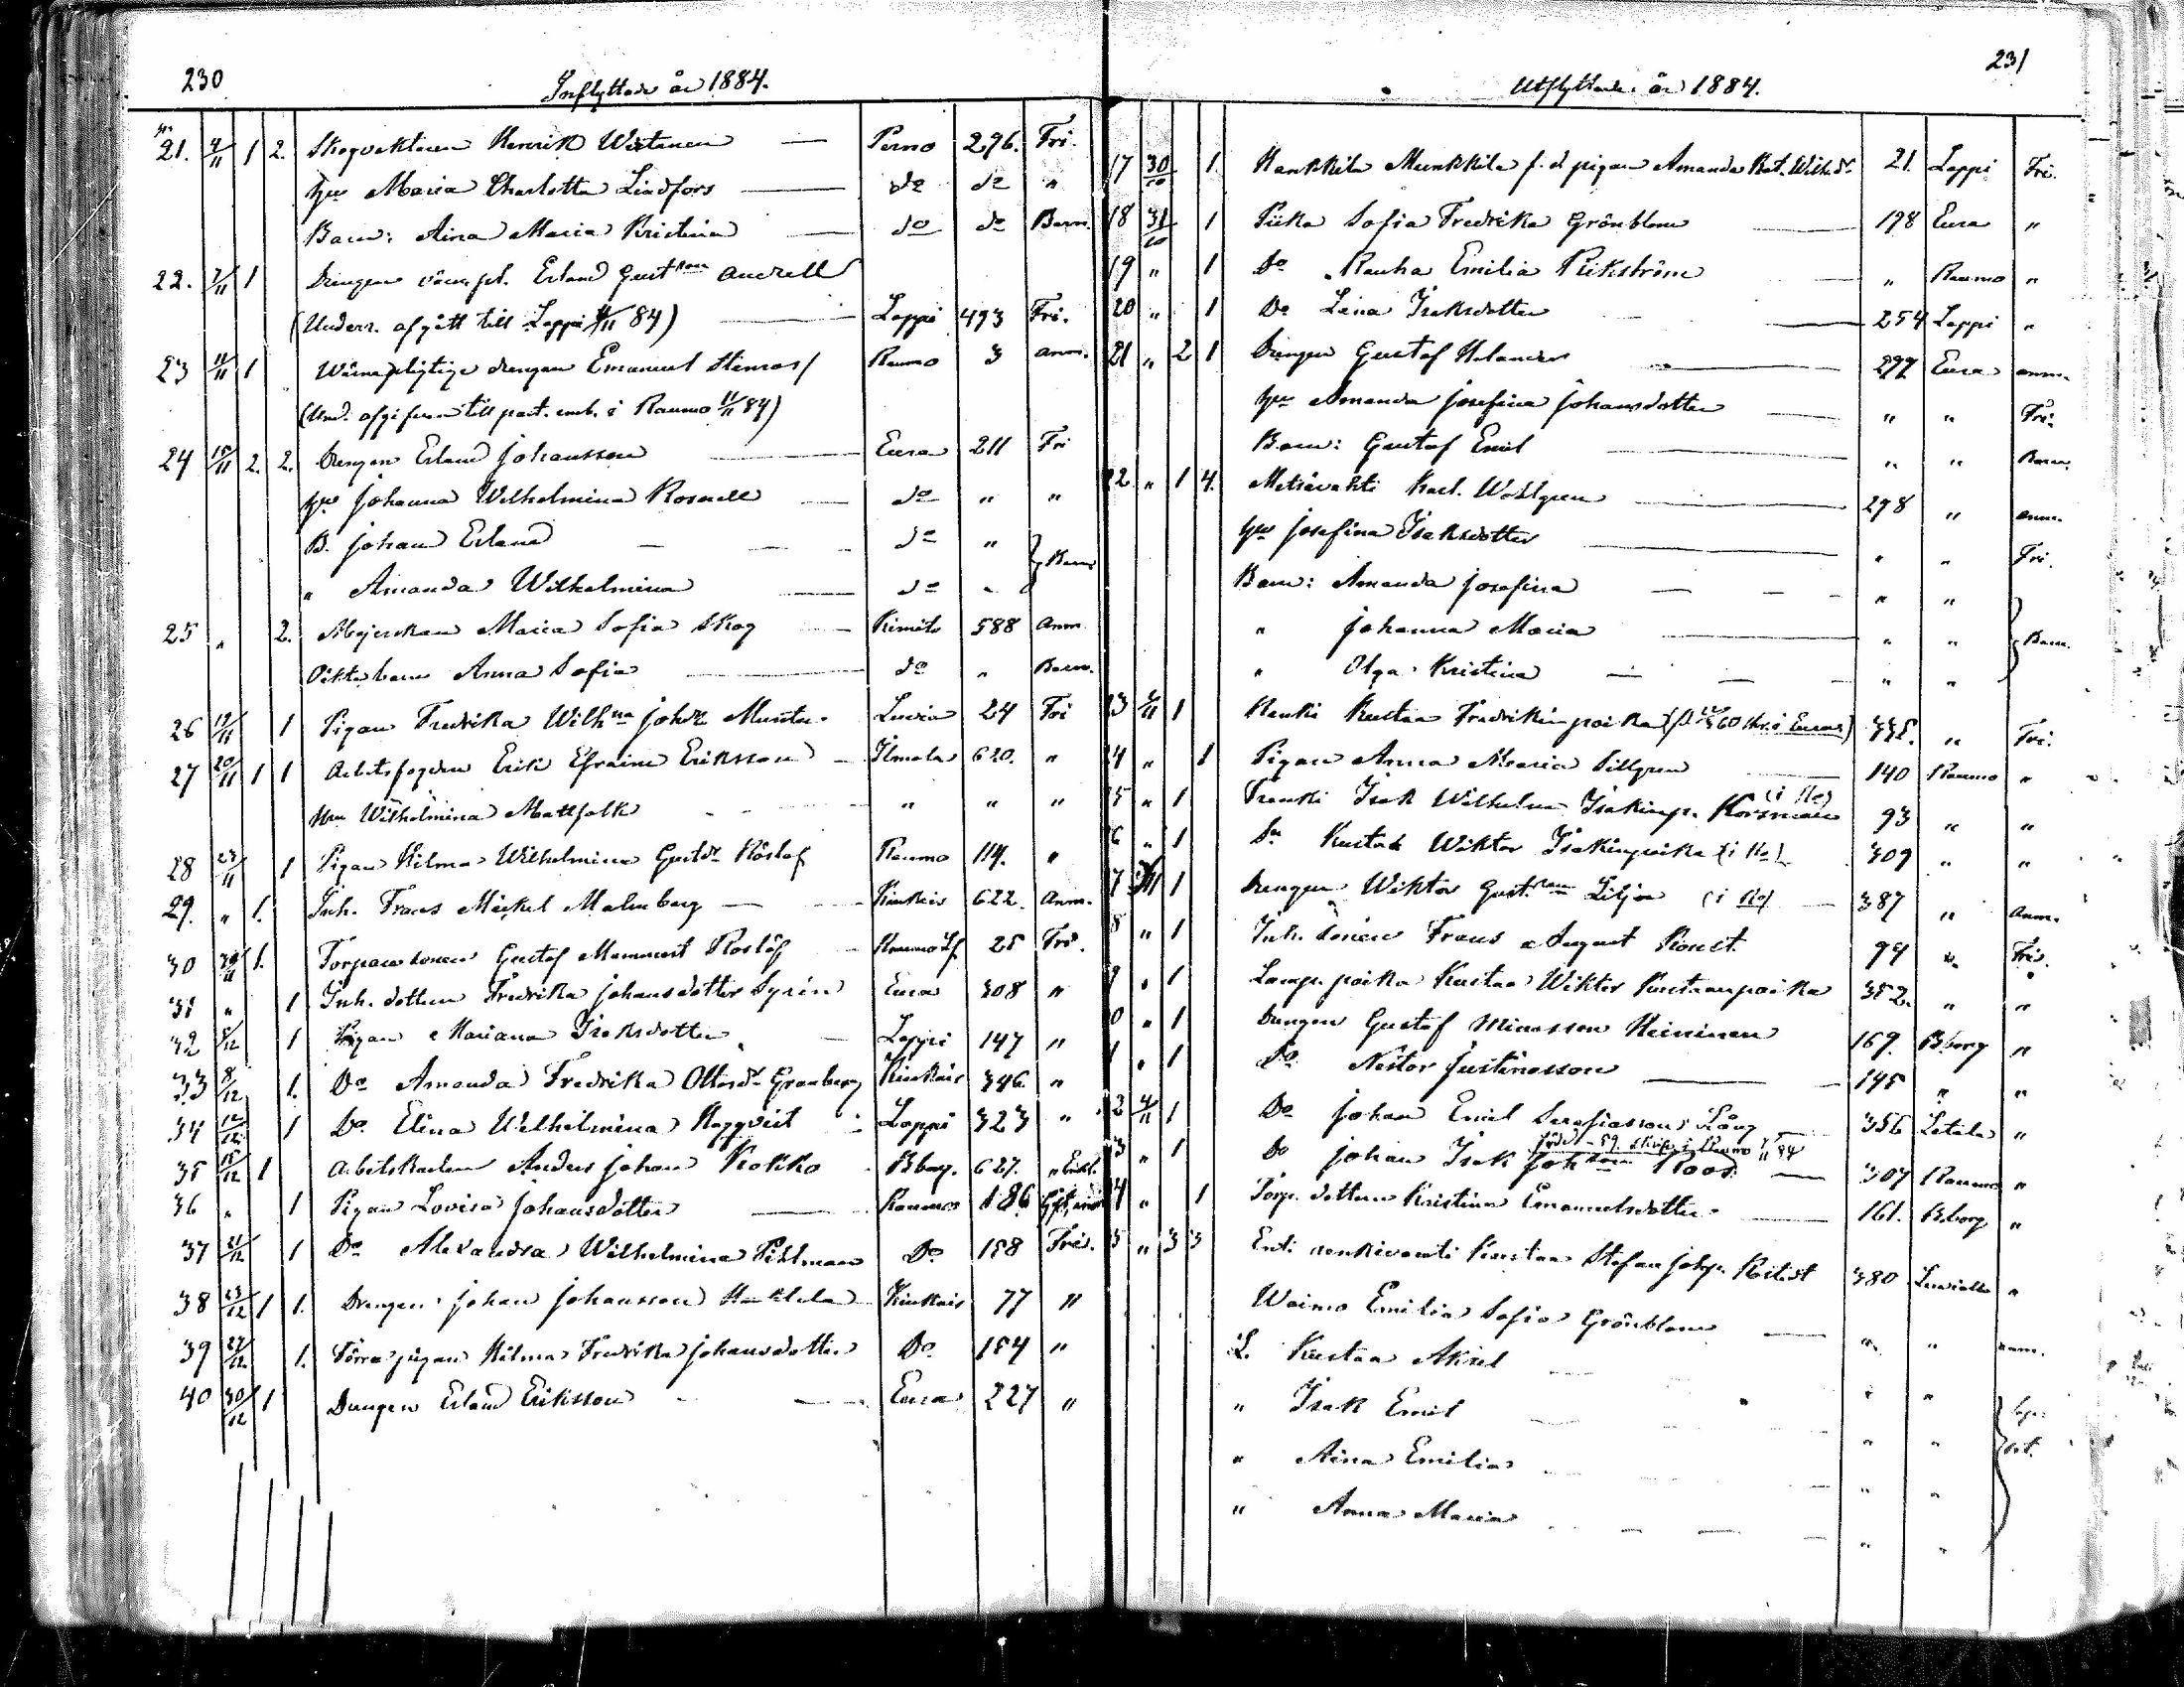 230
Inflyttade år 1884.
21. 4/11 1 2. Skogvaktaren Henrik Wirtanen Perno 296. Fri.
Hu Maria Charlotta Lindfors do do "
Barn: Aina Maria Kristina do do Barn.
22. 7/11 1 Drengen värnpl. Erland Gustsson
(Underr. afgått till Lappi 84) Lappi 493 Fri.
23 11/11 1 Wärnepligtige drengen Emanuel Stenros Raumo 3 anm.
(Und. till past. emb. i Raumo 11/11 84)
24 15/11 2. 2. Drengen Erland Johansson Eura 211 Fri
Hu Johanna Wilhelmina Rosnell do " "
B. Johan Erland do "
" Amanda Wilhelmina do " Barn
25 " 2. Mejerskan Maria Sofia Skog Kimito 588 Anm
Oäkta barn Anna Sofia do " Barn.
26 19/11 1 Pigan Fredrika Wilhna Johdr Luvia 24 Fri
27 20/11 1 1 Arbetsfogden Erik Efraim Eriksson Ilmola 620. "
Hu Wilhelmina Mattfolk " " "
28 23/11 1 Pigan Hilma Wilhelmina Gustdr Röslöf Raumo 114. "
29. " 1. Inh. Frans Mickel Malmberg Kiukais 622. Anm.
30 30/11 1. Torparesonen Gustaf Roslöf Raumo Lf 25 Fri.
31 " 1 Inh. dottren Fredrika Johansdotter Syrén Eura 308 "
32 5/12 1 Pigan Mariana Isaksdotter Lappi 147 "
33 8/12 1. Do Amanda Fredrika Ottosdr Granberg Kiukais 346 "
34 12/12 1 Do Elina Wilhelmina Hagqvist Lappi 323 "
35 15/12 1 Arbetskarlen Anders Johan Kokko Bborg. 627. "
36 " 1 Pigan Lovisa Johansdotter Raumo 186
37 21/12 1 Do Alexandra Wilhelmina Pihlman Do 158 Fri.
38 23/12 1 1. Drengen Johan Johansson Kiukais 77 "
39 27/12 1. Förra pigan Hilma Fredrika Johansdotter Do 154 "
40 30/12 1 Drengen Erland Eriksson Eura 227 "
231
Utflyttade år 1884.
17 30/10 1 Munkkila f.d. pigan Amanda Kat. Wilh.dr 21. Lappi Fri.
18 31/10 1 Piika Sofia Fredrika Grönblom 198 Eura "
19 " 1 Do Rauha Emilia " Raumo "
20 " 1 Do Lena Isaksdotter 254 Lappi "
21 " 2 1 Drengen Gustaf Helander 297 Eura anm.
Hu Amanda Josefina Johansdotter " " Fri.
Barn: Gustaf Emil " " Barn.
22 " 1 4. Metsävahti Karl Wahlgren 298 " anm.
Hu Josefina Isaksdotter " " Fri.
Barn: Amanda Josefina " "
" Johanna Maria " " Barn.
" Olga Kristina " "
3 1 Renki Kustaa Fredrikinpoika " Fri.
4 " 1 Pigan Anna Maria Sillgren 140 Raumo "
5 " 1 Frenki Isak Wilhelm Isakinp. Korsman 93 " "
6 " 1 Do Kustaa Wiktor Isakinpoika 309 " "
7 1 Drengen Wiktor Gustsson Lilja 387 " Anm.
8 " 1 Inh. sonen Frans August 94 " Fri.
9 " 1 Lampp. poika Kustaa Wiktor Kustaanpoika 352. " "
0 " 1 Drengen Gustaf Heininen 169. Bborg "
1 " 1 Do Nestor Justinesson 145 " "
2 4/11 1 Do Johan Emil Serafiasson Lång 356 Letala "
3 " 1 Do Johan Isak Johsson Roos 307 Raumo "
4 " 1 Torp. dottren Kristina Emanuelsdotter 161. Bborg "
5 " 3 3 Kustaa Stefan Johp. 380. "
Waimo Emilia Sofia Grönblom " " anm.
L. Kustaa Aksel " "
" Isak Emil " "
" Aina Emilia " "
" Anna Maria " "